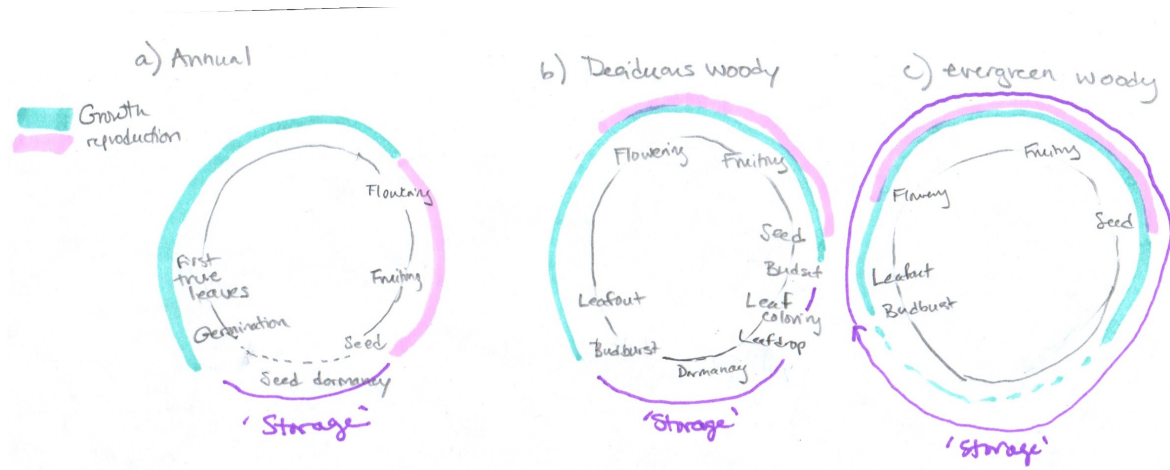 a) Annual
Growth
reproduction
Flowering
Fruiting
Seed
Seed dormancy
Germination
First
true
leaves
'Storage'
b) Deciduous woody
Flowering
Fruiting
Seed
Budset
Leaf
coloring
Leafdrop
Dormancy
Budburst
Leafout
'Storage'
c) evergreen woody
Fruiting
Flowering
Seed
Leafout
Budburst
'Storage'